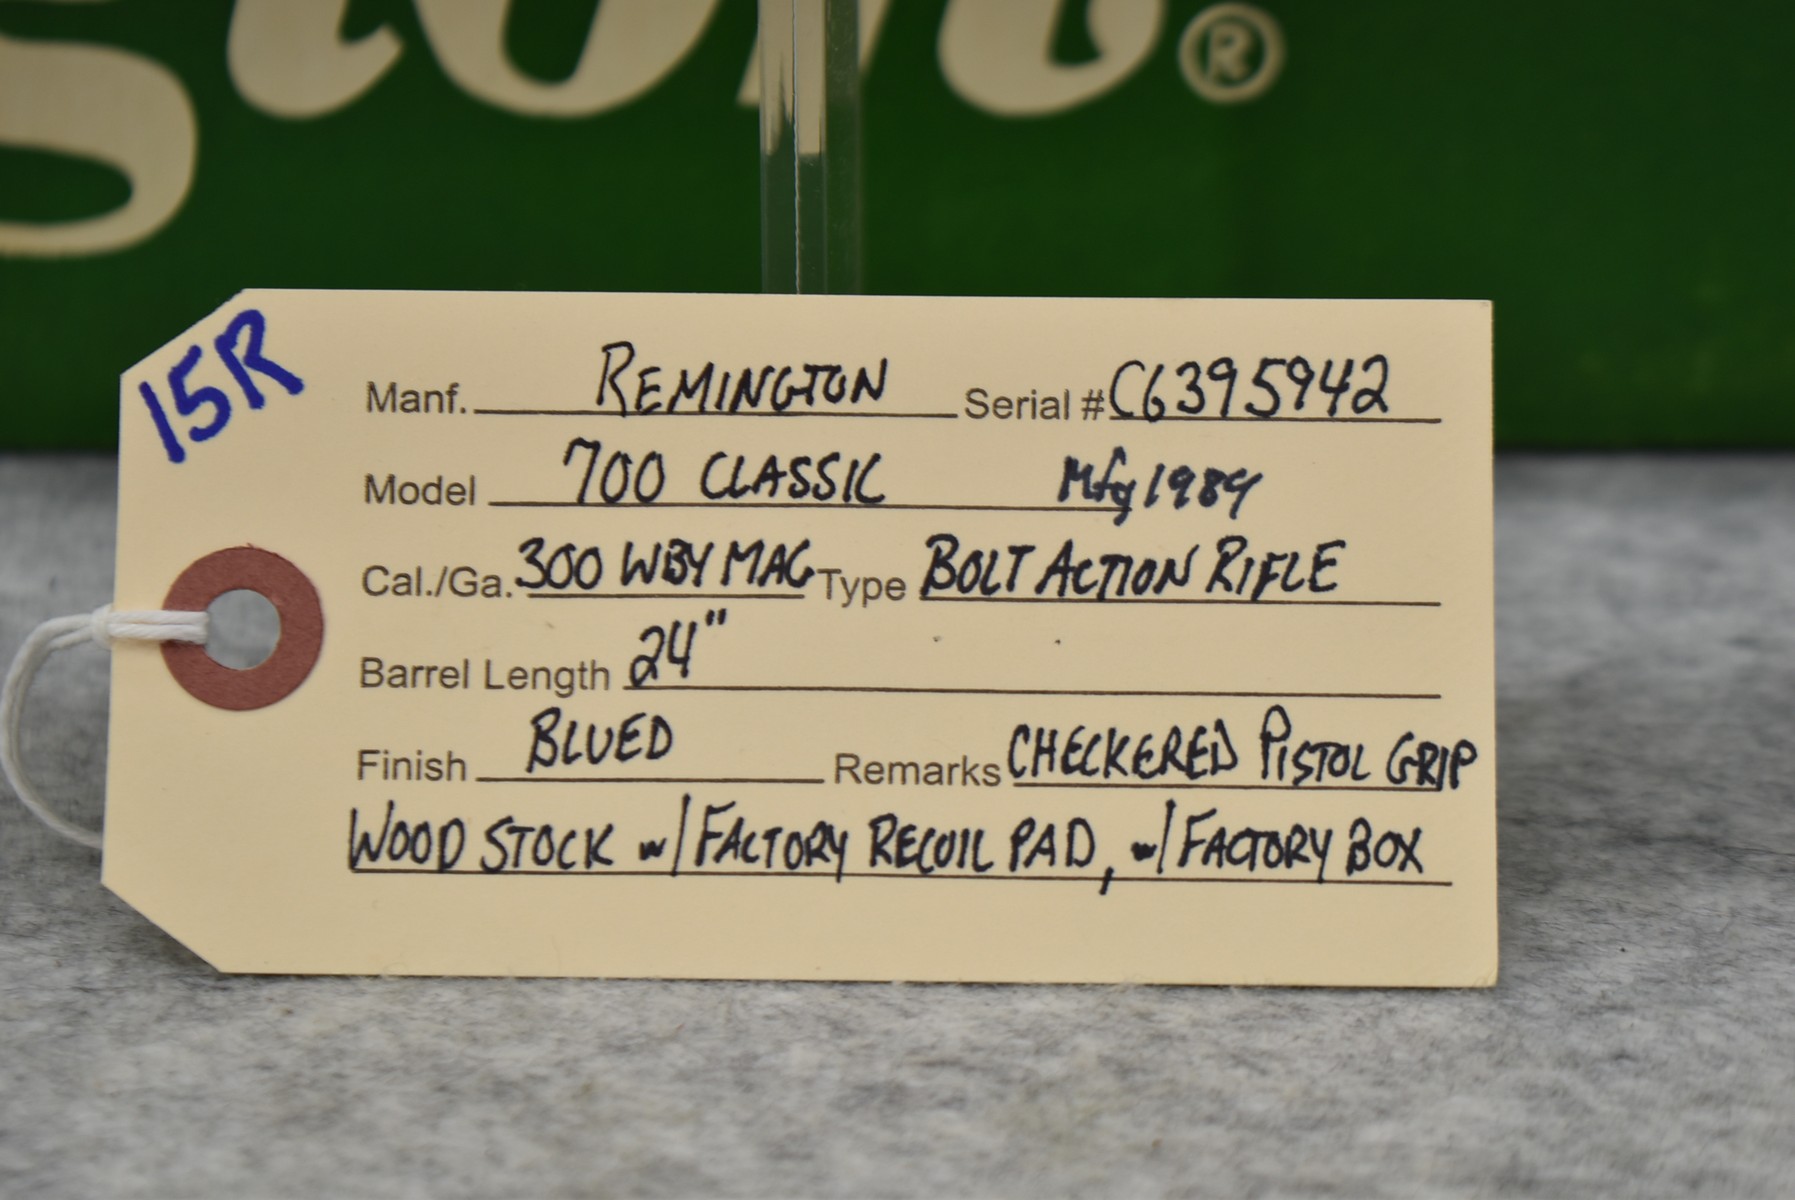 ®
15R
Manf. REMINGTON Serial # C6395942
Model 700 CLASSIC Mfg 1989
Cal./Ga. 300 WBY MAG Type BOLT ACTION RIFLE
Barrel Length 24"
Finish BLUED Remarks CHECKERED PISTOL GRIP
WOOD STOCK w/ FACTORY RECOIL PAD, w/ FACTORY BOX